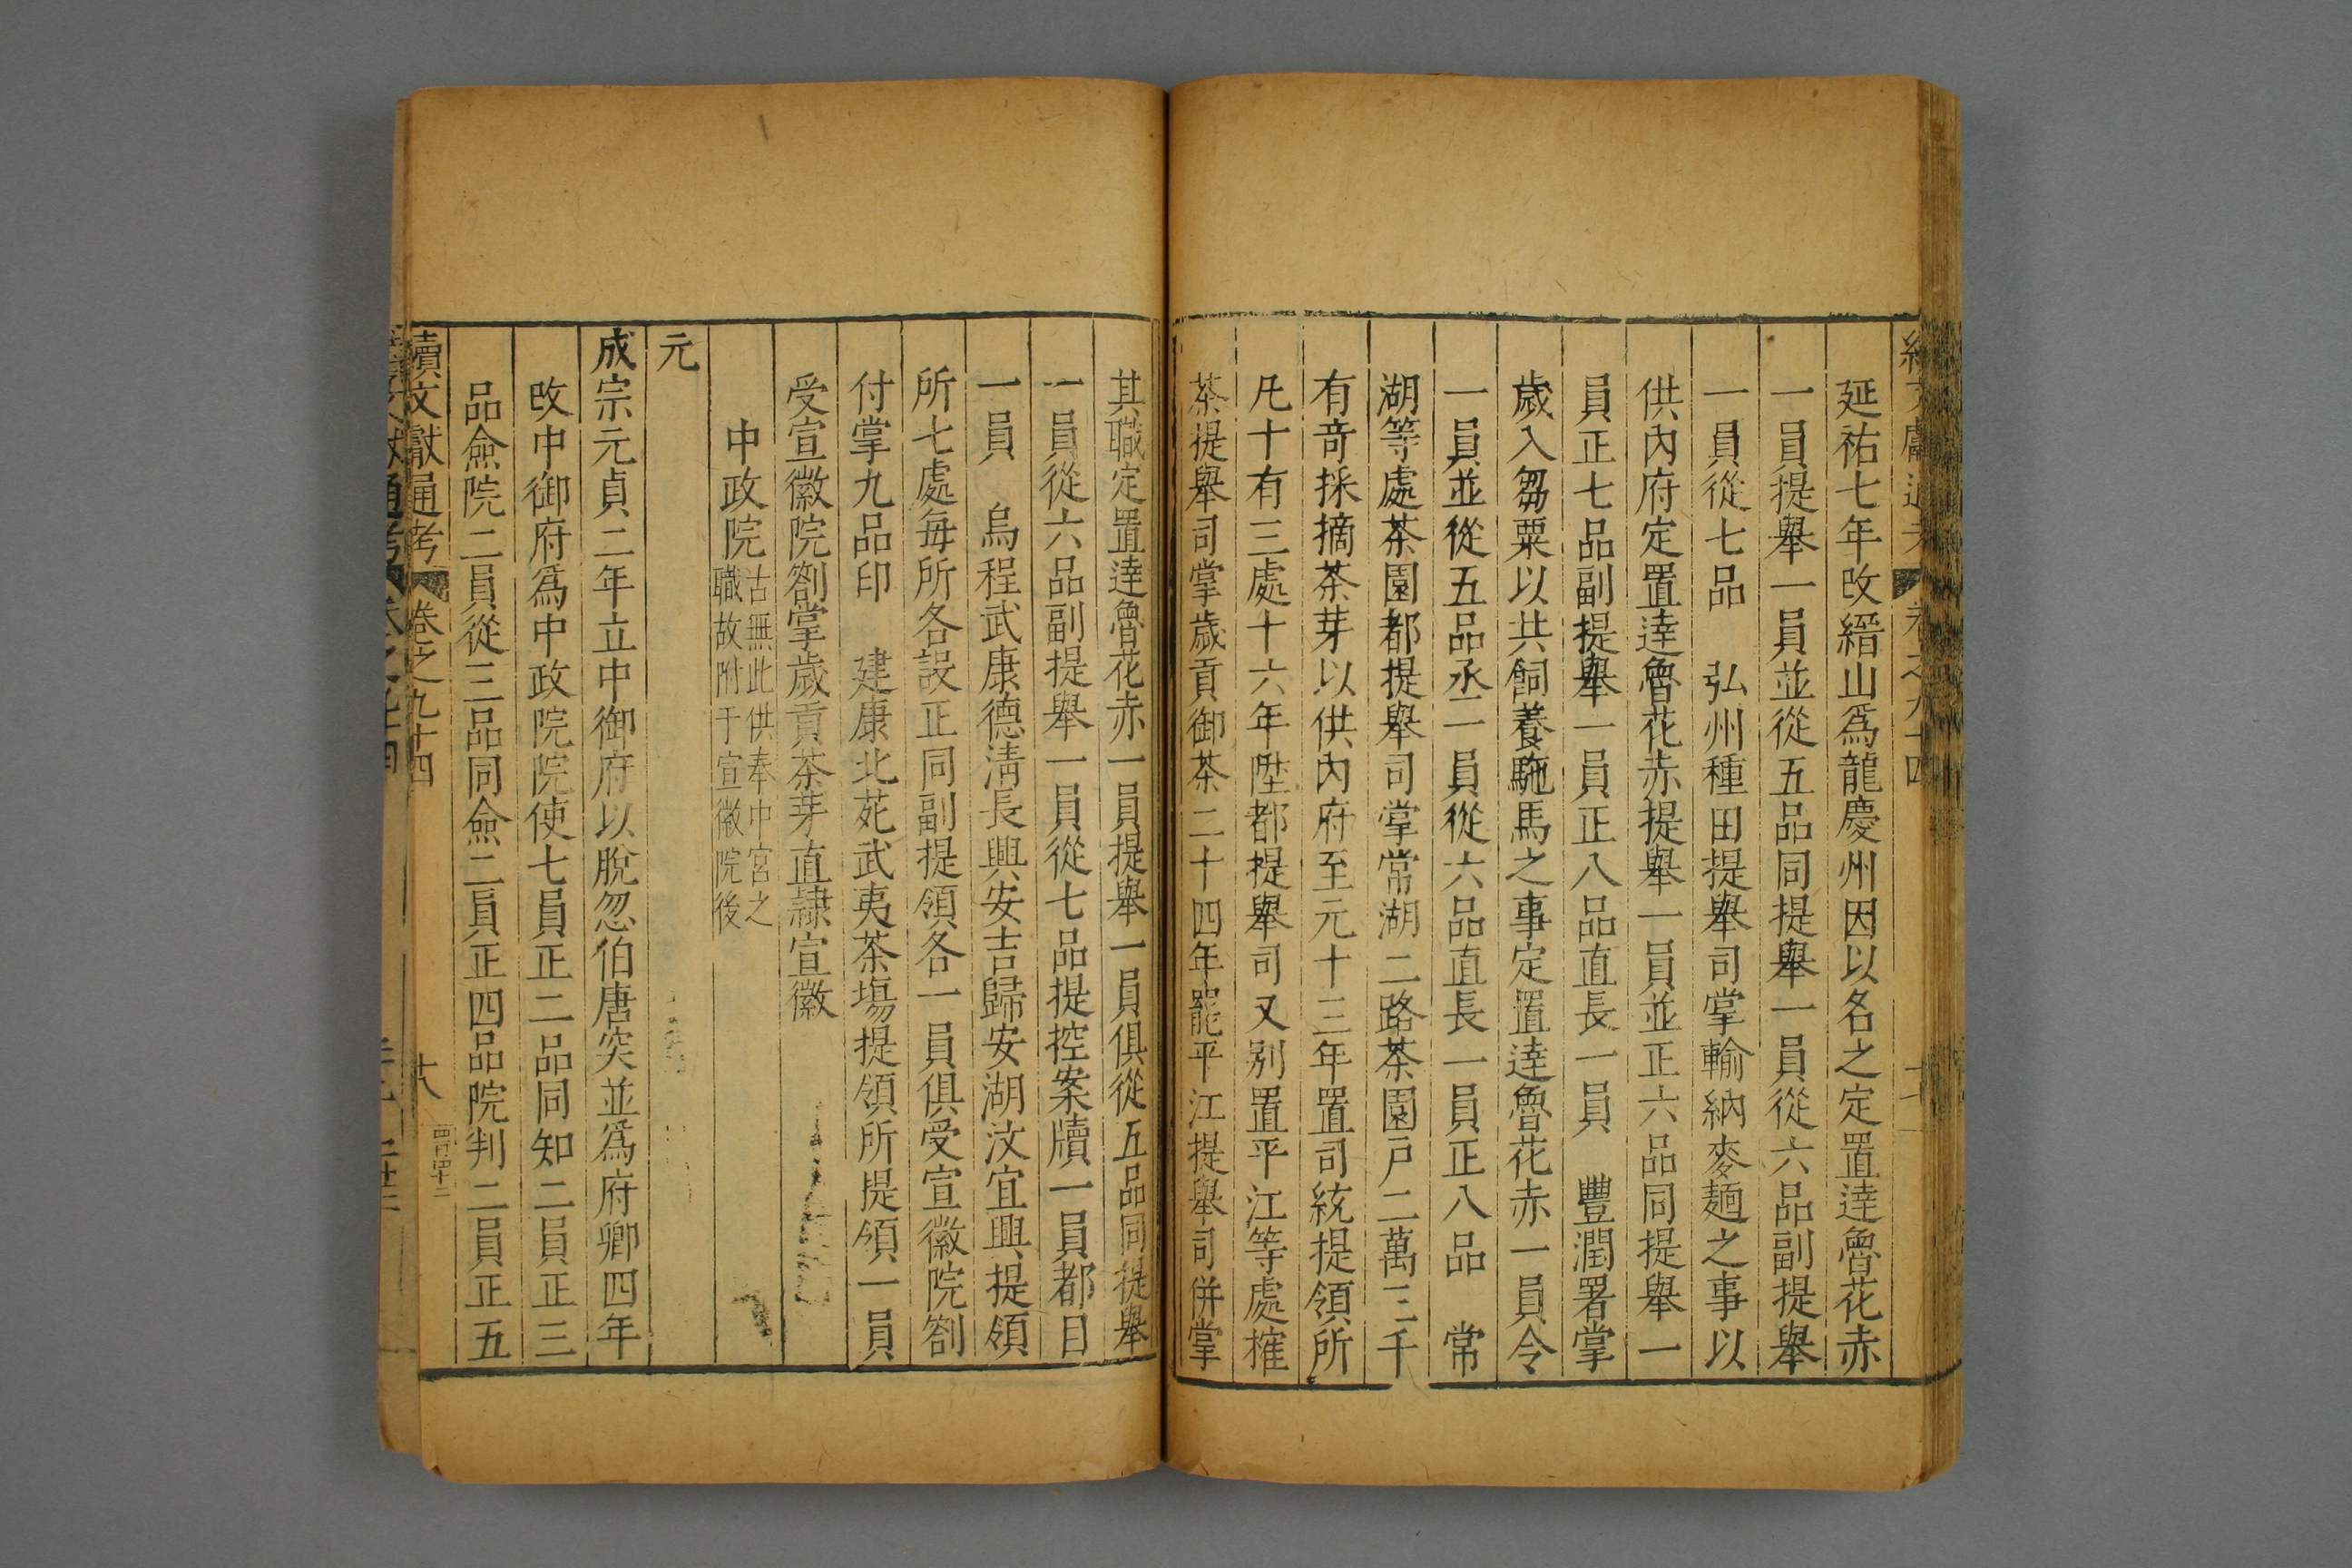 延祐七年改縉山爲龍慶州因以名之定置達魯花赤
一員提舉一員並從五品同提舉一員從六品副提舉
一員從七品 弘州種田提舉司掌輸納麥麵之事以
供內府定置達魯花赤提舉一員並正六品同提舉一
員正七品副提舉一員正八品直長一員 豐潤署掌
歲入芻粟以共飼養駞馬之事定置達魯花赤一員令
一員並從五品丞二員從六品直長一員正八品 常
湖等處茶園都提舉司掌常湖二路茶園戶二萬三千
有奇採摘茶芽以供內府至元十三年置司統提領所
凡十有三處十六年陞都提舉司又別置平江等處榷
茶提舉司掌歲貢御茶二十四年罷平江提舉司併掌
其職定置達魯花赤一員提舉一員俱從五品同提舉
一員從六品副提舉一員從七品提控案牘一員都目
一員 烏程武康德清長興安吉歸安湖汶宜興提領
所七處每所各設正同副提領各一員俱受宣徽院劄
付掌九品印 建康北苑武夷茶場提領所提領一員
受宣徽院劄掌歲貢茶芽直隸宣徽
中政院 古無此供奉中宮之
職故附于宣徽院後
元
成宗元貞二年立中御府以脫忽伯唐突並爲府卿四年
改中御府爲中政院院使七員正二品同知二員正三
品僉院二員從三品同僉二員正四品院判二員正五
續文獻通考 卷之九十四 十八